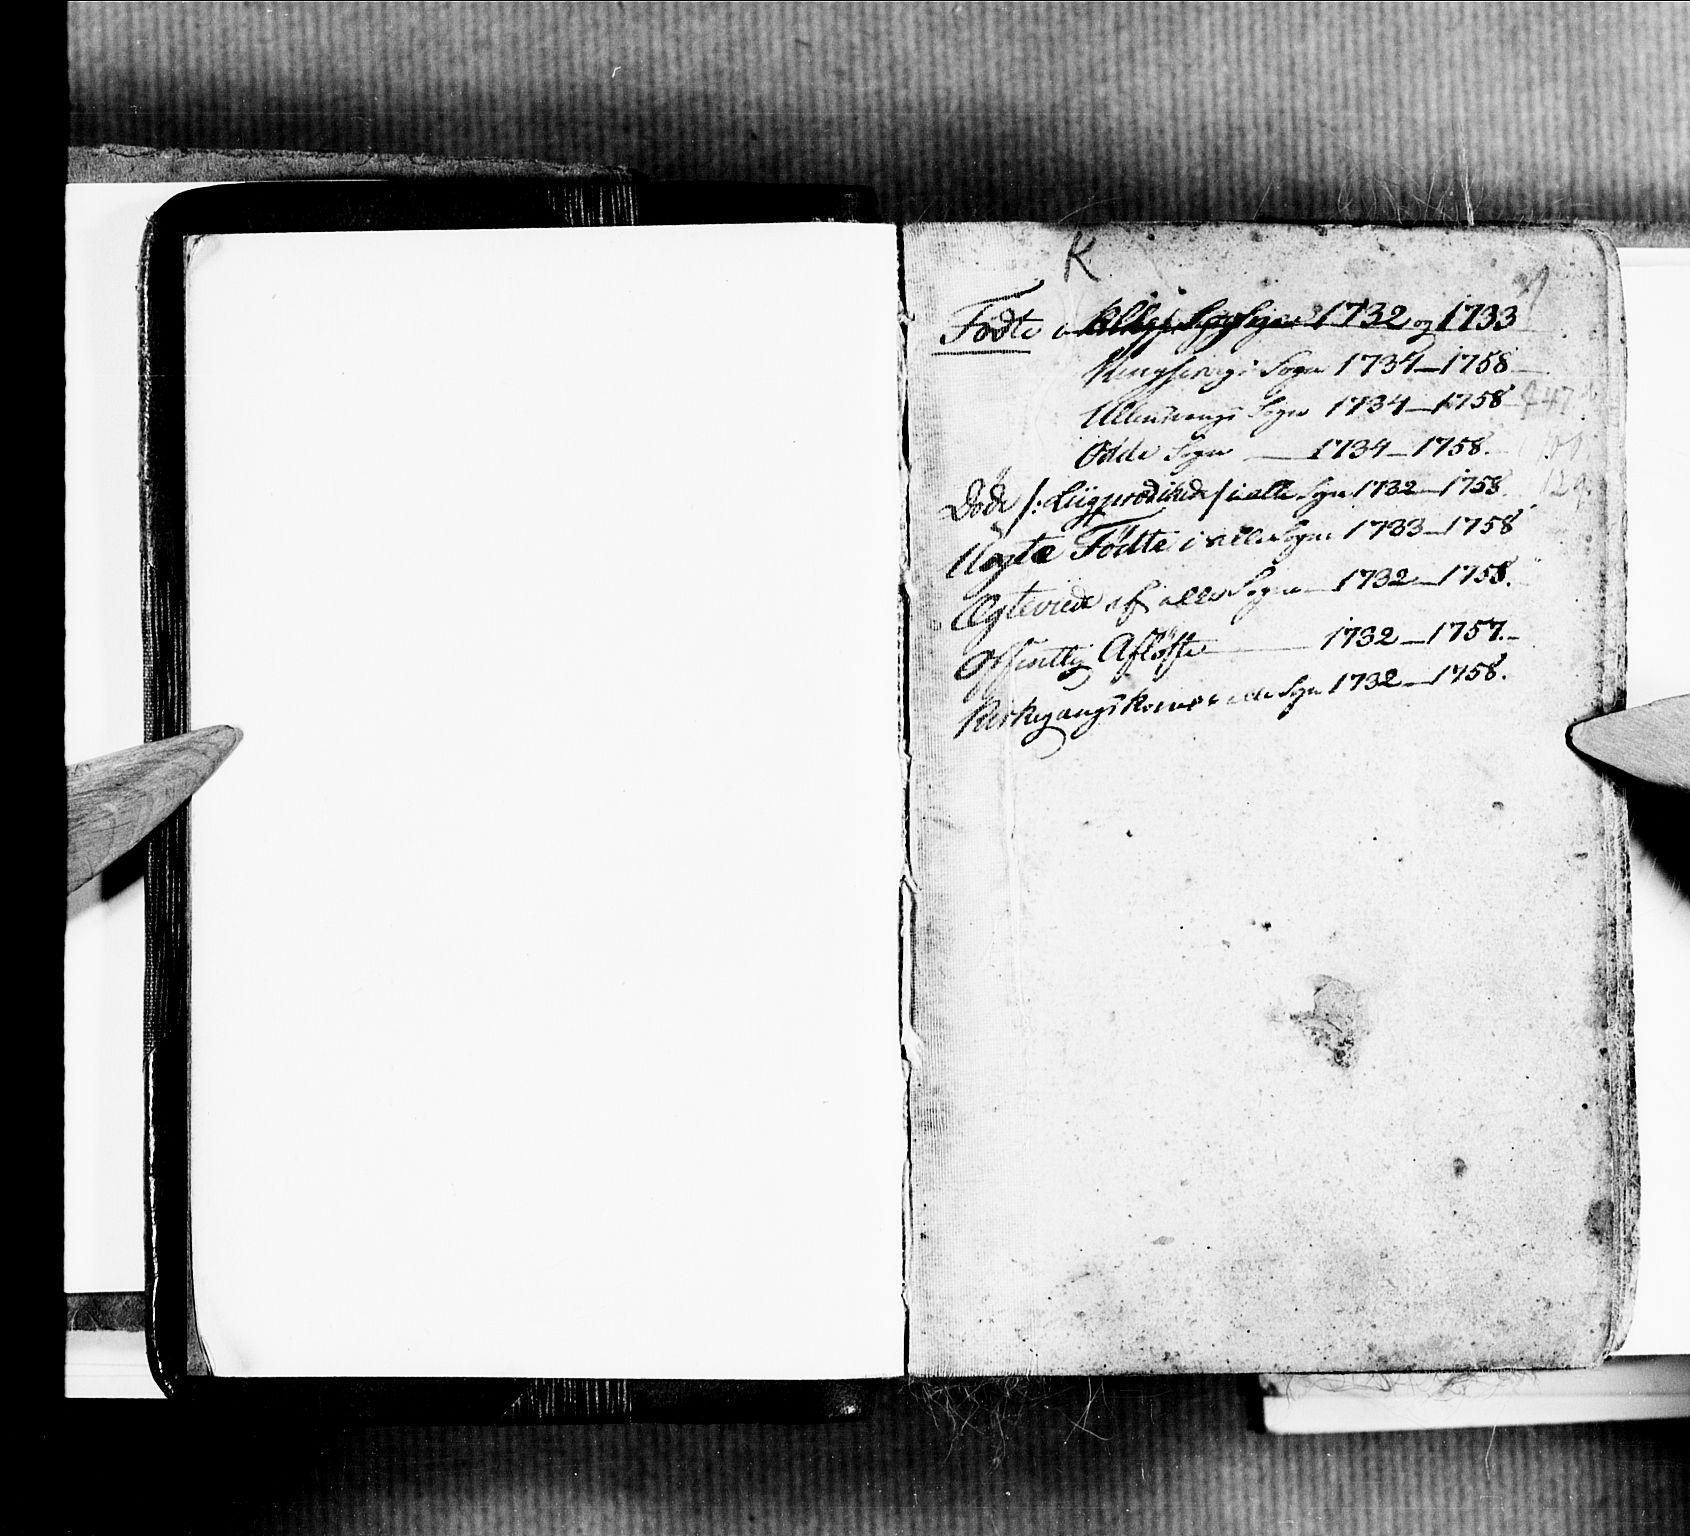 K
Fødte i 1732 og 1733
Kingservigs Sogn 1734–1758
Ullensvangs Sogn 1734–1758
Odde Sogn — 1734–1758.
Døde /: Liigprædikede / i alle Sogn 1732–1758. 129.
Uægte Fødte i alle Sogne 1733–1758
Ægteviede af alle Sogne – 1732–1758.
Offentlig Afløste — 1732–1757.
Kirkegangskoner alle Sogn 1732–1758.